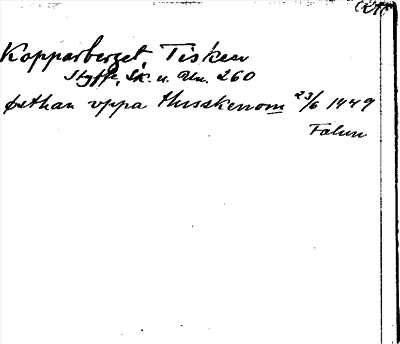 Kopparberget, Tisken
Styffe, Sk. u. Un. 260
østhan vppa thusskenom 23/6 1449
Falun